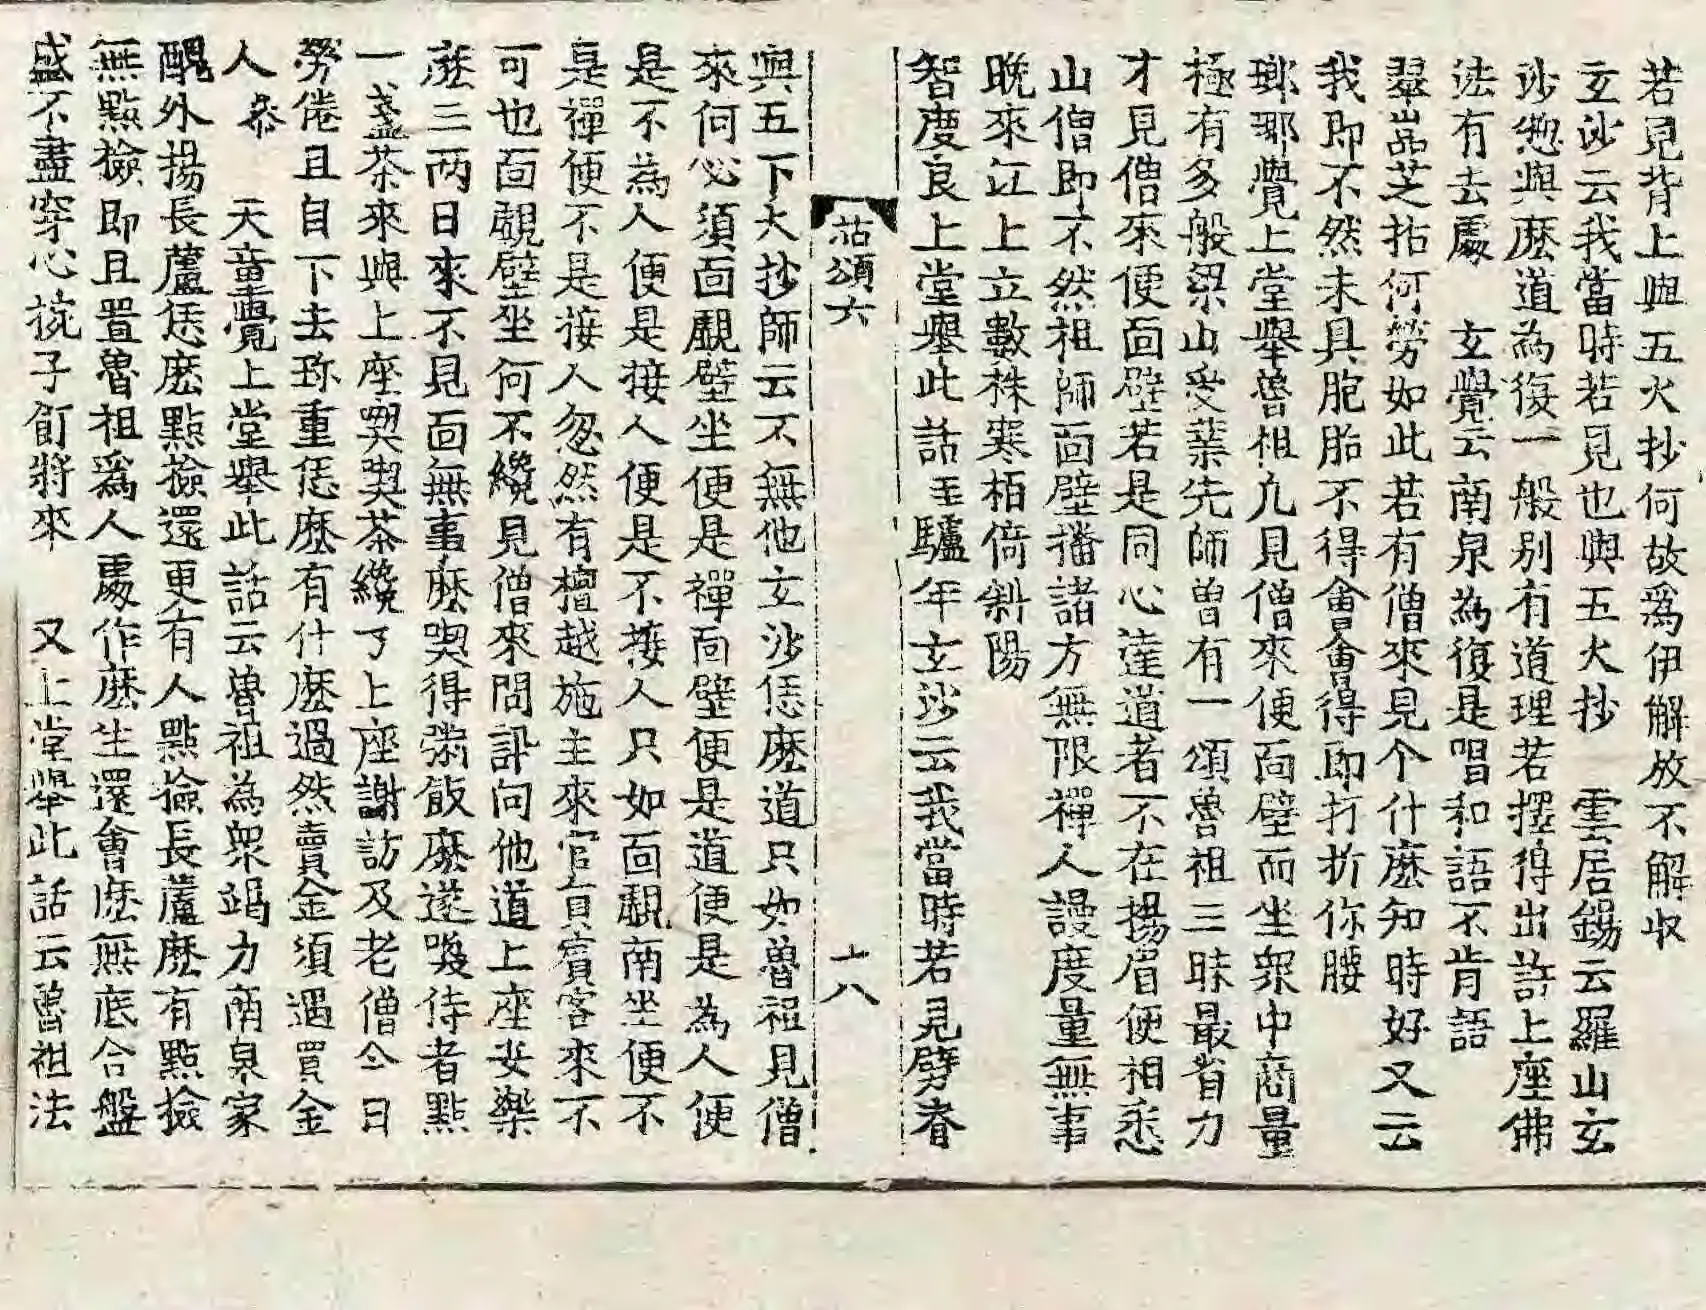 若見背上與五火抄何故爲伊解放不解收
玄沙云我當時若見也與五火抄　雲居錫云羅山玄
沙緫與麽道為復一般別有道理若擇得出許上座佛
法有去處　玄覺云南泉為復是唱和語不肯語
翠巖芝拈何勞如此若有僧來見个什麽知時好又云
我即不然未具胞胎不得會會得即打折你腰
瑯瑘覺上堂舉魯祖九見僧來便面壁而坐衆中商量
極有多般梁山受業先師曽有一頌魯祖三昧最省力
才見僧來便面壁若是同心達道者不在揚眉便相悉
山僧即不然祖師面壁播諸方無限禪人謾度量無事
晚來江上立數株寒栢倚斜陽
智度良上堂舉此話至驢年玄沙云我當時若見劈脊
拈頌六
十八
與五下火抄師云不無他玄沙恁麽道只如魯祖見僧
來何必須面覷壁坐便是禪面壁便是道便是為人便
是不為人便是接人便是不接人只如面覷南坐便不
是禪便不是接人忽然有檀越施主來官員賓客來不
可也面覰壁坐何不纔見僧來問訊向他道上座安樂
麽三两日來不見面無事麽喫得粥飯麽遂喚侍者點
一盞茶來與上座喫喫茶纔了上座謝訪及老僧今日
勞倦且自下去珎重恁麽有什麽過然賣金須遇買金
人叅　天童覺上堂舉此話云魯祖為衆竭力南泉家
醜外揚長蘆恁麽點撿還更有人點撿長蘆麽有點撿
無點撿即且置魯祖爲人處作麽生還會麽無底合盤
盛不盡穿心椀子飣將來　又上堂舉此話云魯祖法